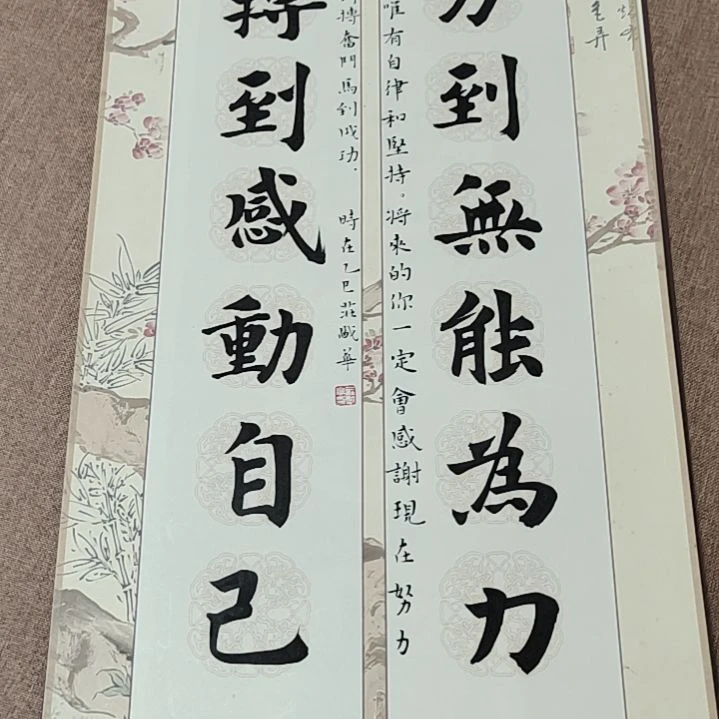 力到無能為力
唯有自律和堅持。将來的你一定會感謝現在努力
搏到感動自己
拼搏奮鬥馬到成功、
時在乙巳莊威華